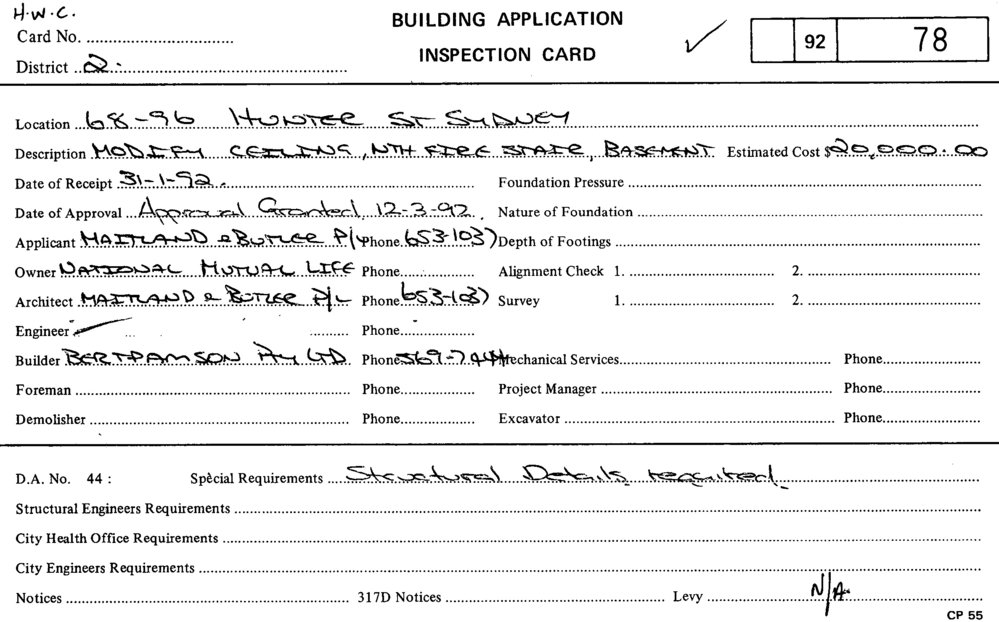 H.W.C.
BUILDING APPLICATION
Card No.
INSPECTION CARD
✓ 92 78
District 2.
Location 68-96 HUNTER ST SYDNEY
Description MODIFY CEILING, NTH FIRE STAIR, BASEMENT Estimated Cost $20,000.00
Date of Receipt 31-1-92. Foundation Pressure
Date of Approval Approval Granted 12-3-92. Nature of Foundation
Applicant MAITLAND & BUTLER P/L Phone 653-1037 Depth of Footings
Owner NATIONAL MUTUAL LIFE Phone Alignment Check 1. 2.
Architect MAITLAND & BUTLER P/L Phone 653-1037 Survey 1. 2.
Engineer Phone
Builder BERTRAMSON Pty LTD Phone Mechanical Services Phone
Foreman Phone Project Manager Phone
Demolisher Phone Excavator Phone
D.A. No. 44 : Special Requirements Structural Details required.
Structural Engineers Requirements
City Health Office Requirements
City Engineers Requirements
Notices 317D Notices Levy N/A
CP 55